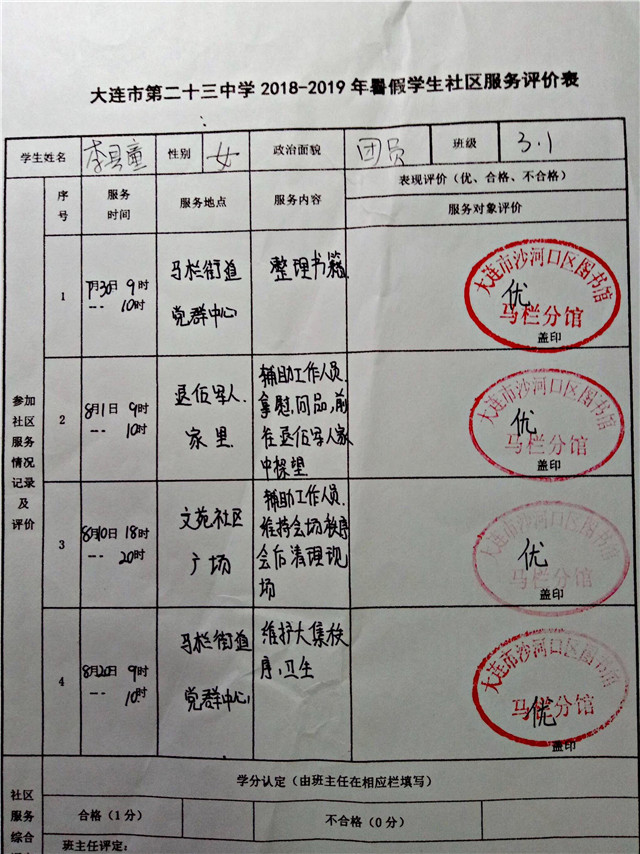 大连市第二十三中学 2018-2019 年暑假学生社区服务评价表
学生姓名 李昙童 性别 女 政治面貌 团员 班级 3.1
序号 服务时间 服务地点 服务内容 表现评价（优、合格、不合格）
服务对象评价
参加社区服务情况记录及评价
1
7月30日 9时
-- 10时
马栏街道
党群中心
整理书籍
大连市沙河口区图书馆
优
马栏分馆
盖印
2
8月1日 9时
-- 10时
退伍军人
家里
辅助工作人员
拿慰问品,前
往退伍军人家
中探望
大连市沙河口区图书馆
优
马栏分馆
盖印
3
8月10日 18时
-- 20时
文苑社区
广场
辅助工作人员
维持会场秩序
会后清理现
场
大连市沙河口区图书馆
优
马栏分馆
盖印
4
8月20日 9时
-- 10时
马栏街道
党群中心
维护大集秩
序,卫生
大连市沙河口区图书馆
马栏分馆
优
盖印
社区
服务
综合
学分认定（由班主任在相应栏填写）
合格（1 分） 不合格（0 分）
班主任评定: